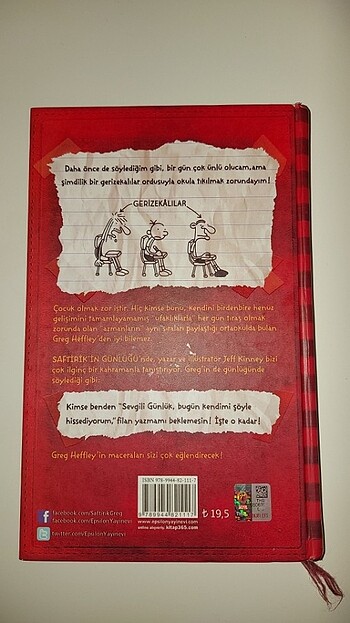 Daha önce de söylediğim gibi, bir gün çok ünlü olucam,ama
şimdilik bir gerizekâlılar ordusuyla okula tıkılmak zorundayım!
GERİZEKÂLILAR
Çocuk olmak zor iştir. Hiç kimse bunu, kendini birdenbire henüz
gelişimini tamamlayamamış "ufaklıklarla" her gün tıraş olmak
zorunda olan "azmanların" aynı sıraları paylaştığı ortaokulda bulan
Greg Heffley den iyi bilemez.
SAFTİRİK'İN GÜNLÜĞÜ'nde, yazar ve illüstratör Jeff Kinney bizi
çok ilginç bir kahramanla tanıştırıyor. Greg'in de günlüğünde
söylediği gibi:
Kimse benden "Sevgili Günlük, bugün kendimi şöyle
hissediyorum," filan yazmamı beklemesin! İşte o kadar!
Greg Heffley'in maceraları sizi çok eğlendirecek!
ISBN 978-9944-82-111-7
9 789944 821117
₺ 19,5
facebook.com/SaftirikGreg
facebook.com/EpsilonYayinevi
twitter.com/EpsilonYayinevi
www.epsilonyayinevi.com
online alışveriş: kitap365.com